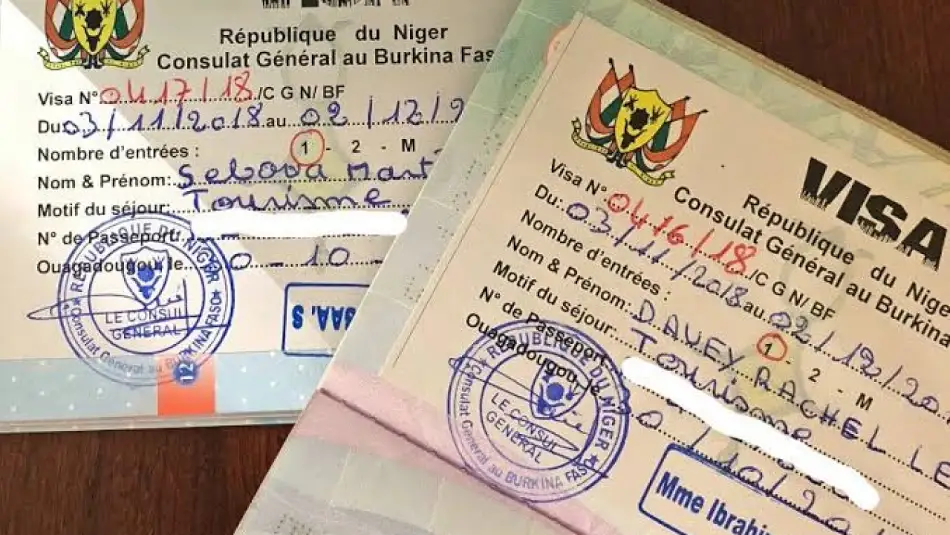 République du Niger
Consulat Général au Burkina Fas
Visa N° 0417/18 /C G N/ BF
Du 03/11/2018 au 02/12/2
Nombre d'entrées : 1 - 2 - M
Nom & Prénom: Sebova Mart
Motif du séjour: Tourisme
N° de Passeport
Ouagadougou le 0 - 10 -
RÉPUBLIQUE DU NIGER
LE CONSUL
GÉNÉRAL
Consulat Général au BURKINA FASO
12
SAA. S
VISA
République du Niger
Consulat Général au Burkina
Visa N° 0416/18 /C G N/ BF
Du: 03/11/2018 au 02/12/20
Nombre d'entrées: 1 2 - M
Nom & Prénom: DAVEY RACHEL LE
Motif du séjour: Tourisme
N° de Passeport
Ouagadougou le 30/10/20
RÉPUBLIQUE DU NIGER
LE CONSUL
GÉNÉRAL
Consulat Général au BURKINA FASO
Mme Ibrahi